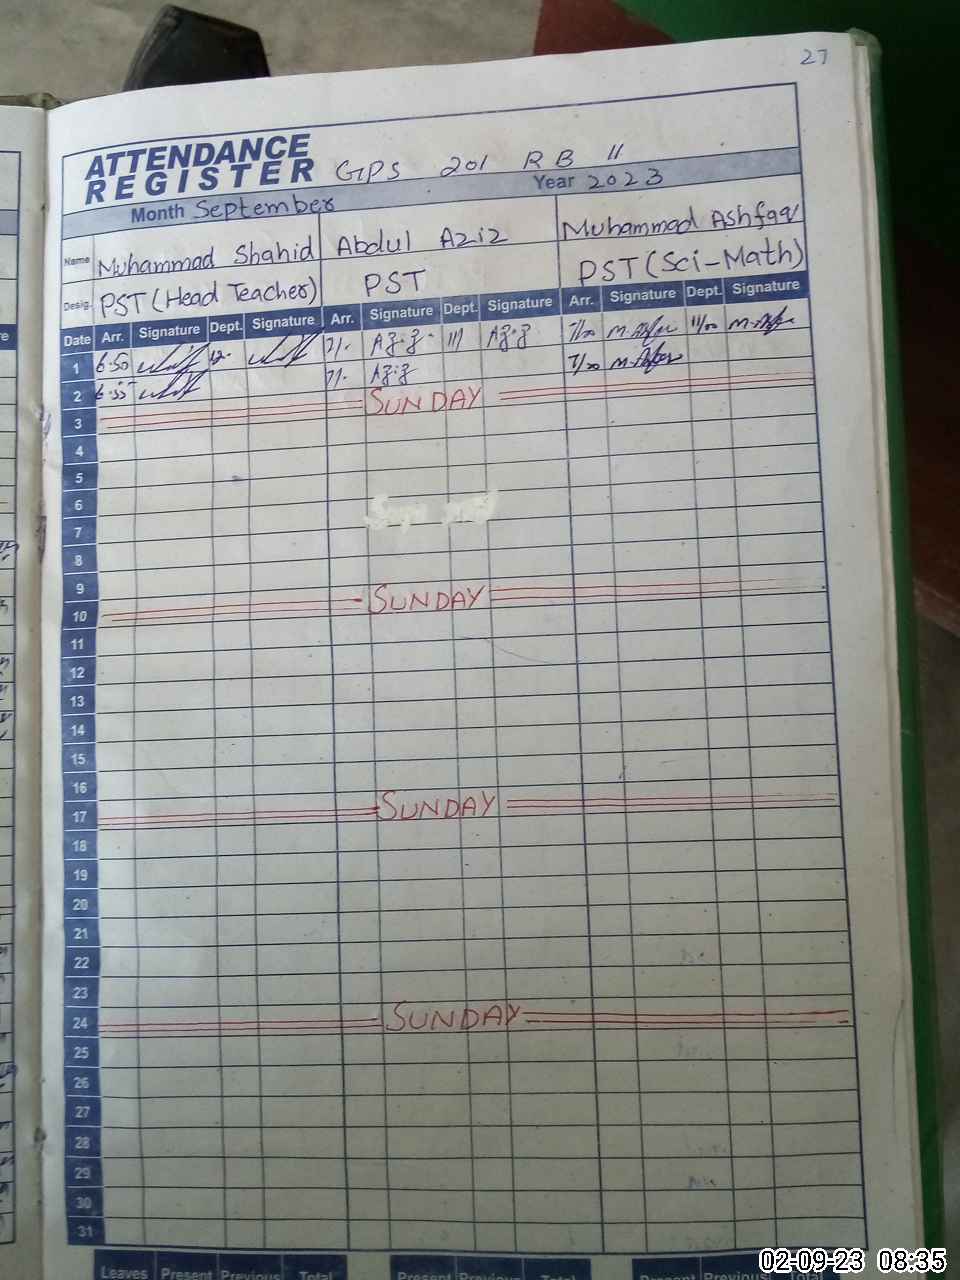 27
ATTENDANCE
REGISTER GPS 201 RB II
Month September Year 2023
Name Muhammad Shahid Abdul Aziz Muhammad Ashfaq
Desig. PST (Head Teacher) PST PST (Sci-Math)
Date Arr. Signature Dept. Signature Arr. Signature Dept. Signature Arr. Signature Dept. Signature
1 6.50 12. 7/. 11/ 7/00 11/00
2 6.55 7/. 7/00
3 SUNDAY
4
5
6
7
8
9
10 SUNDAY
11
12
13
14
15
16
17 SUNDAY
18
19
20
21
22
23
24 SUNDAY
25
26
27
28
29
30
31
Leaves Present Previous Total Present Previous Total Present Previous
02-09-23 08:35